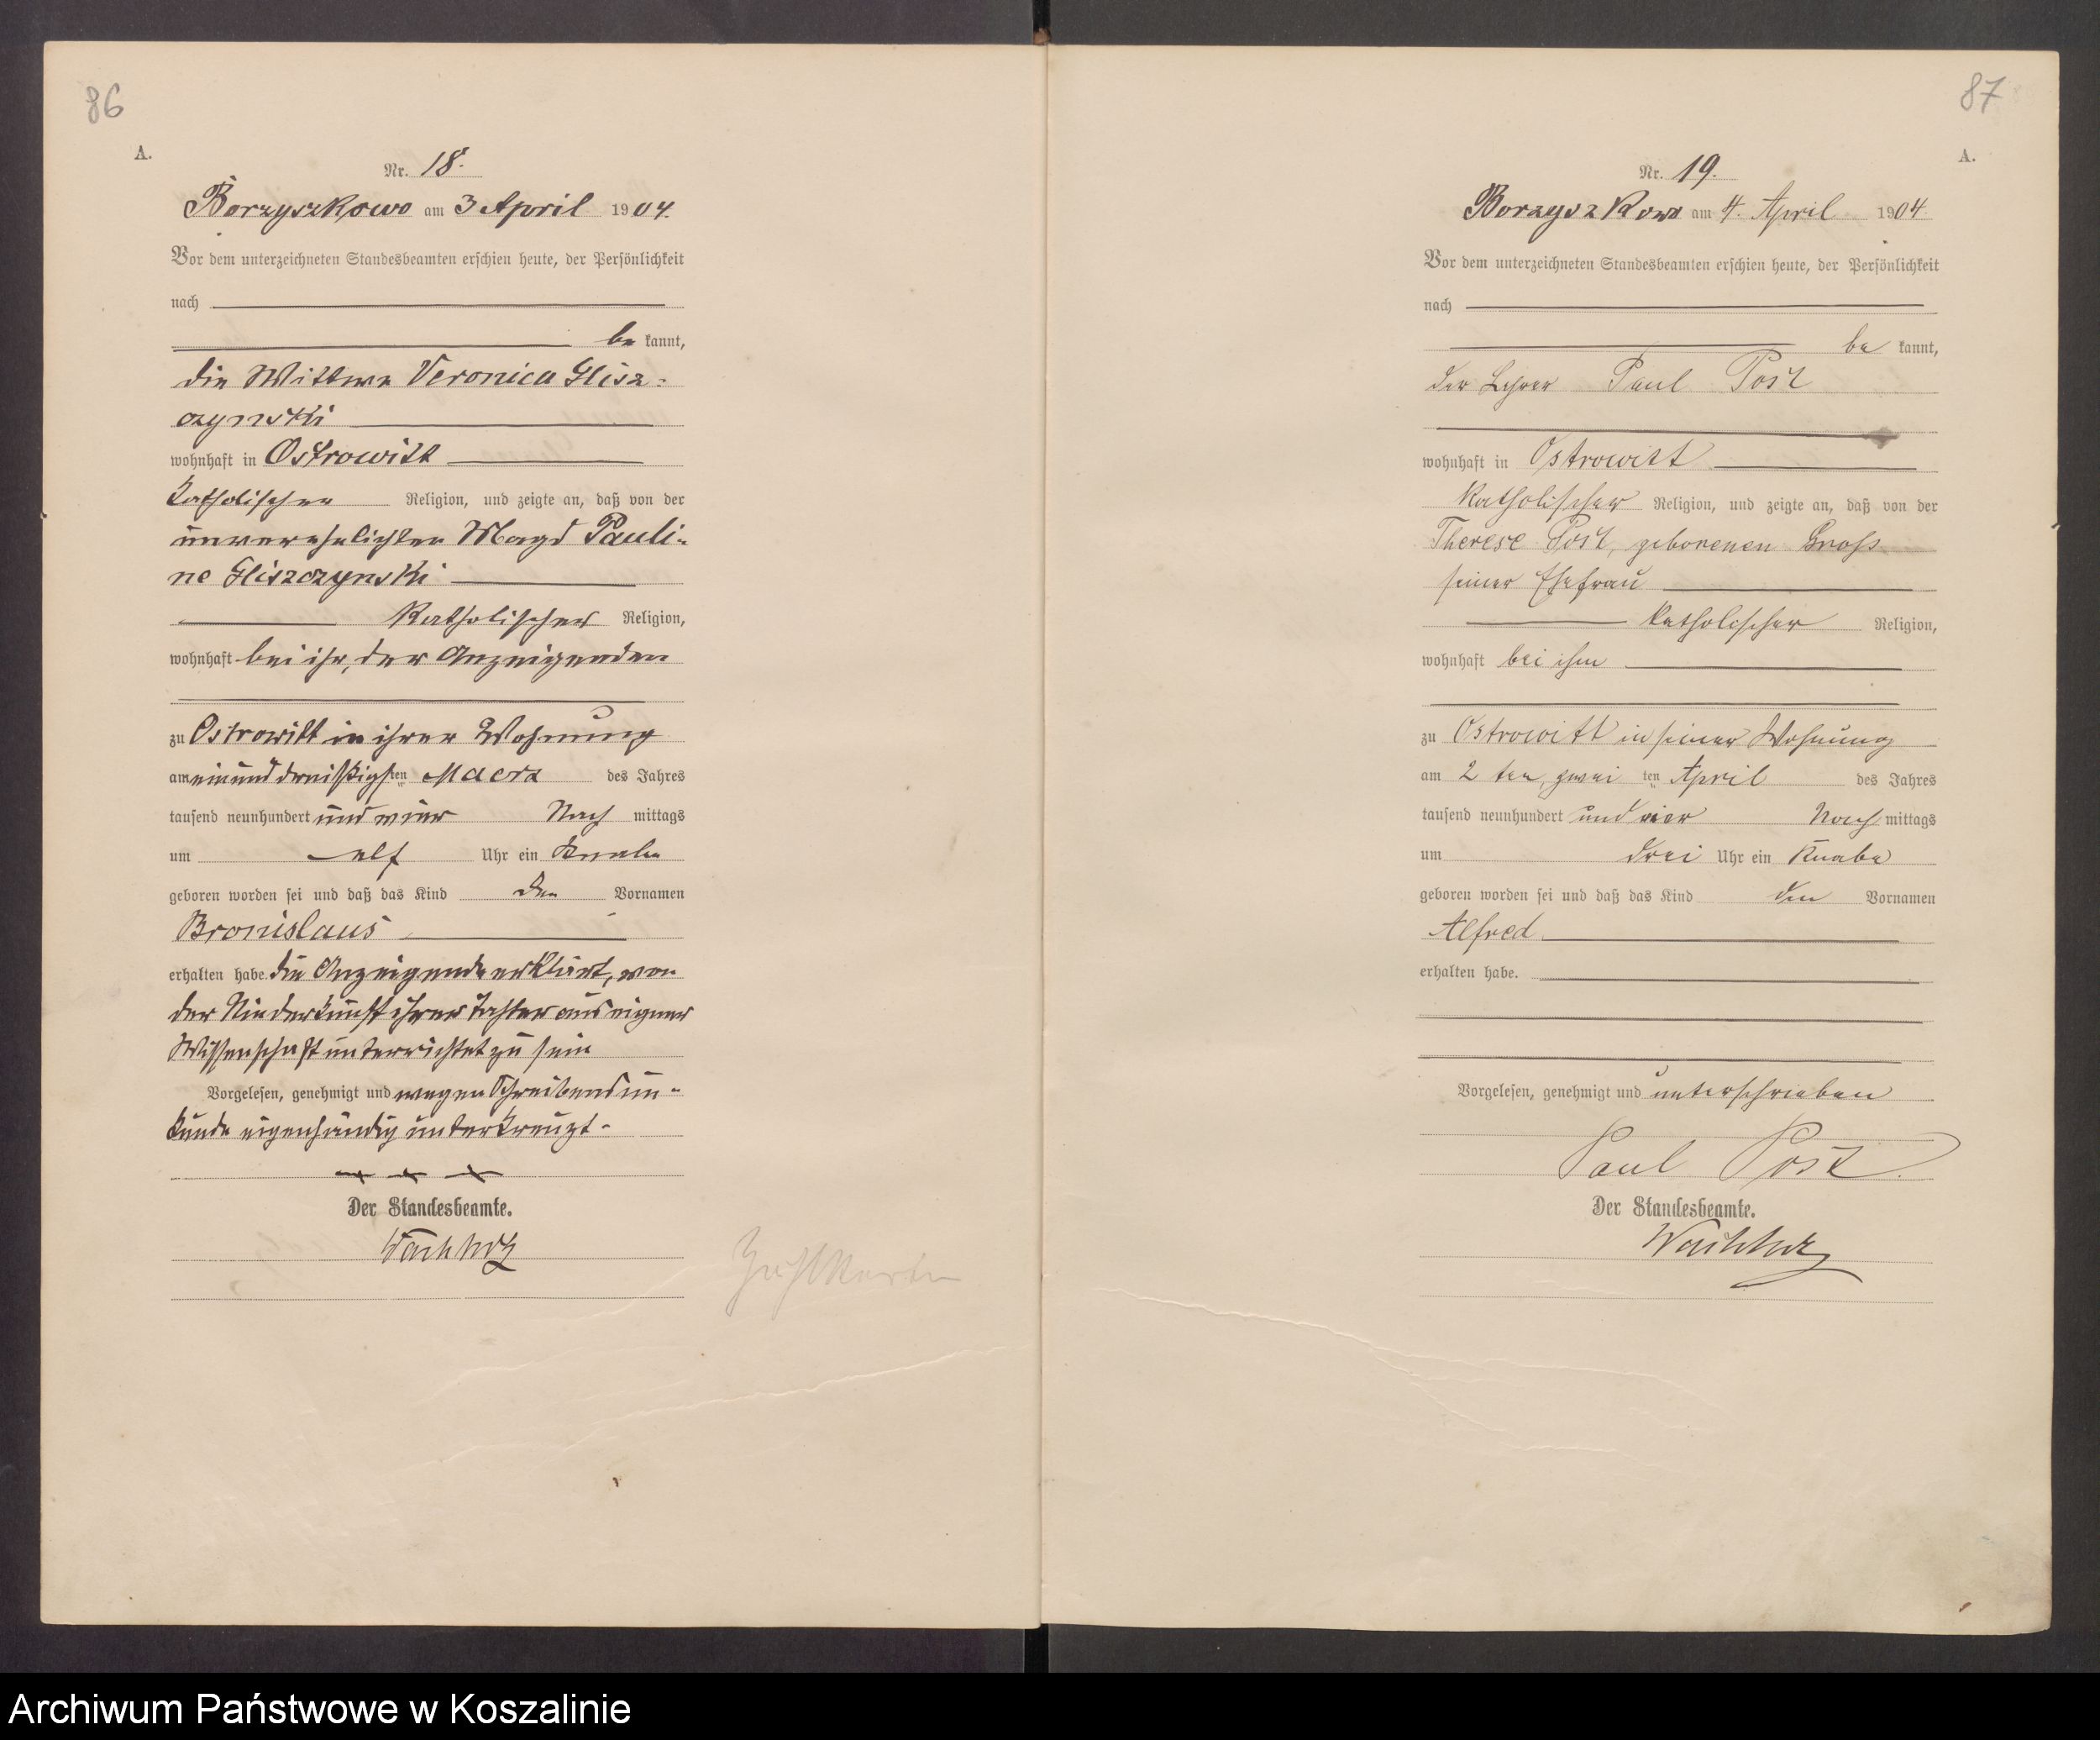 86
A.
Nr. 18.
Borzyszkowo am 3 April 1904.
Vor dem unterzeichneten Standesbeamten erschien heute, der Persönlichkeit
nach
be kannt,
die Wittwe Veronica Glisz-
czynski
wohnhaft in Ostrowitt
katholischer Religion, und zeigte an, daß von der
unverehelichten Magd Pauli-
ne Gliszczynski
katholischer Religion,
wohnhaft bei ihr, der Anzeigenden
zu Ostrowitt in ihrer Wohnung
am einunddreißigsten ten Maerz des Jahres
tausend neunhundert und vier Nach mittags
um elf Uhr ein Knabe
geboren worden sei und daß das Kind den Vornamen
Bronislaus
erhalten habe. die Anzeigende erklärt, von
der Niederkunft ihrer Tochter aus eigener
Wissenschaft unterrichtet zu sein
Vorgelesen, genehmigt und wegen Schreibensun-
kunde eigenhändig unterkreuzt.
+ + +
Der Standesbeamte.
Wachholz
Zählkarte
87
A.
Nr. 19.
Borzyszkowo am 4. April 1904.
Vor dem unterzeichneten Standesbeamten erschien heute, der Persönlichkeit
nach
be kannt,
der Lehrer Paul Post
wohnhaft in Ostrowitt
katholischer Religion, und zeigte an, daß von der
Therese Post, geborenen Gross
seiner Ehefrau
katholischer Religion,
wohnhaft bei ihm
zu Ostrowitt in seiner Wohnung
am 2 ten, zwei ten April des Jahres
tausend neunhundert und vier Nach mittags
um drei Uhr ein Knabe
geboren worden sei und daß das Kind den Vornamen
Alfred
erhalten habe.
Vorgelesen, genehmigt und unterschrieben
Paul Post.
Der Standesbeamte.
Wachholz
Archiwum Państwowe w Koszalinie